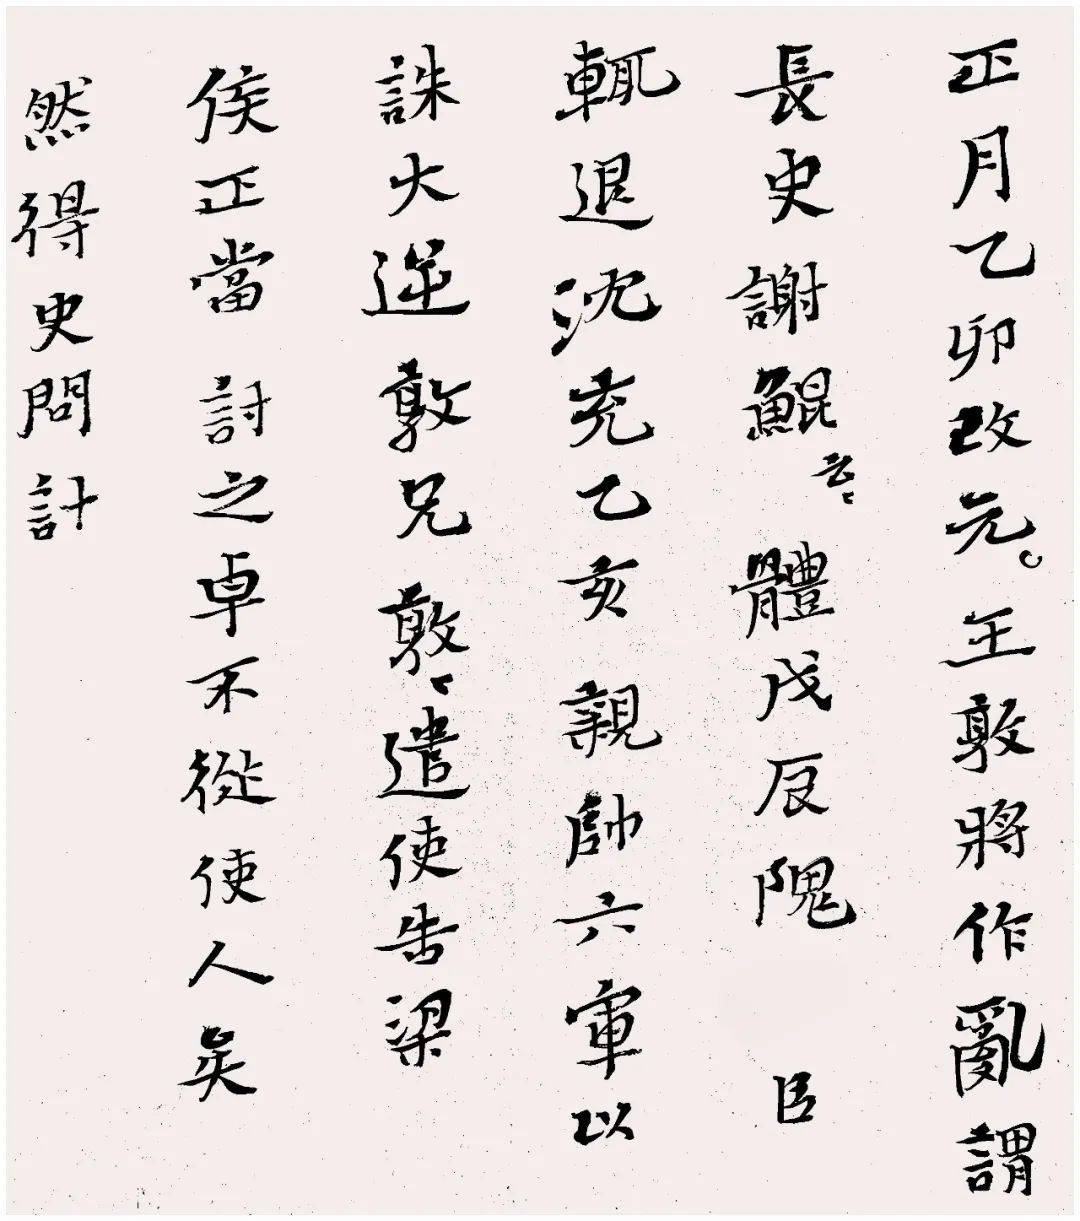 正月乙卯改元。王敦將作亂謂
長史謝鯤云〻體戊辰隗 臣
輒退沈充乙亥親帥六軍以
誅大逆敦兄敦〻遣使告梁
侯正當討之卓不從使人矣
然得史問計